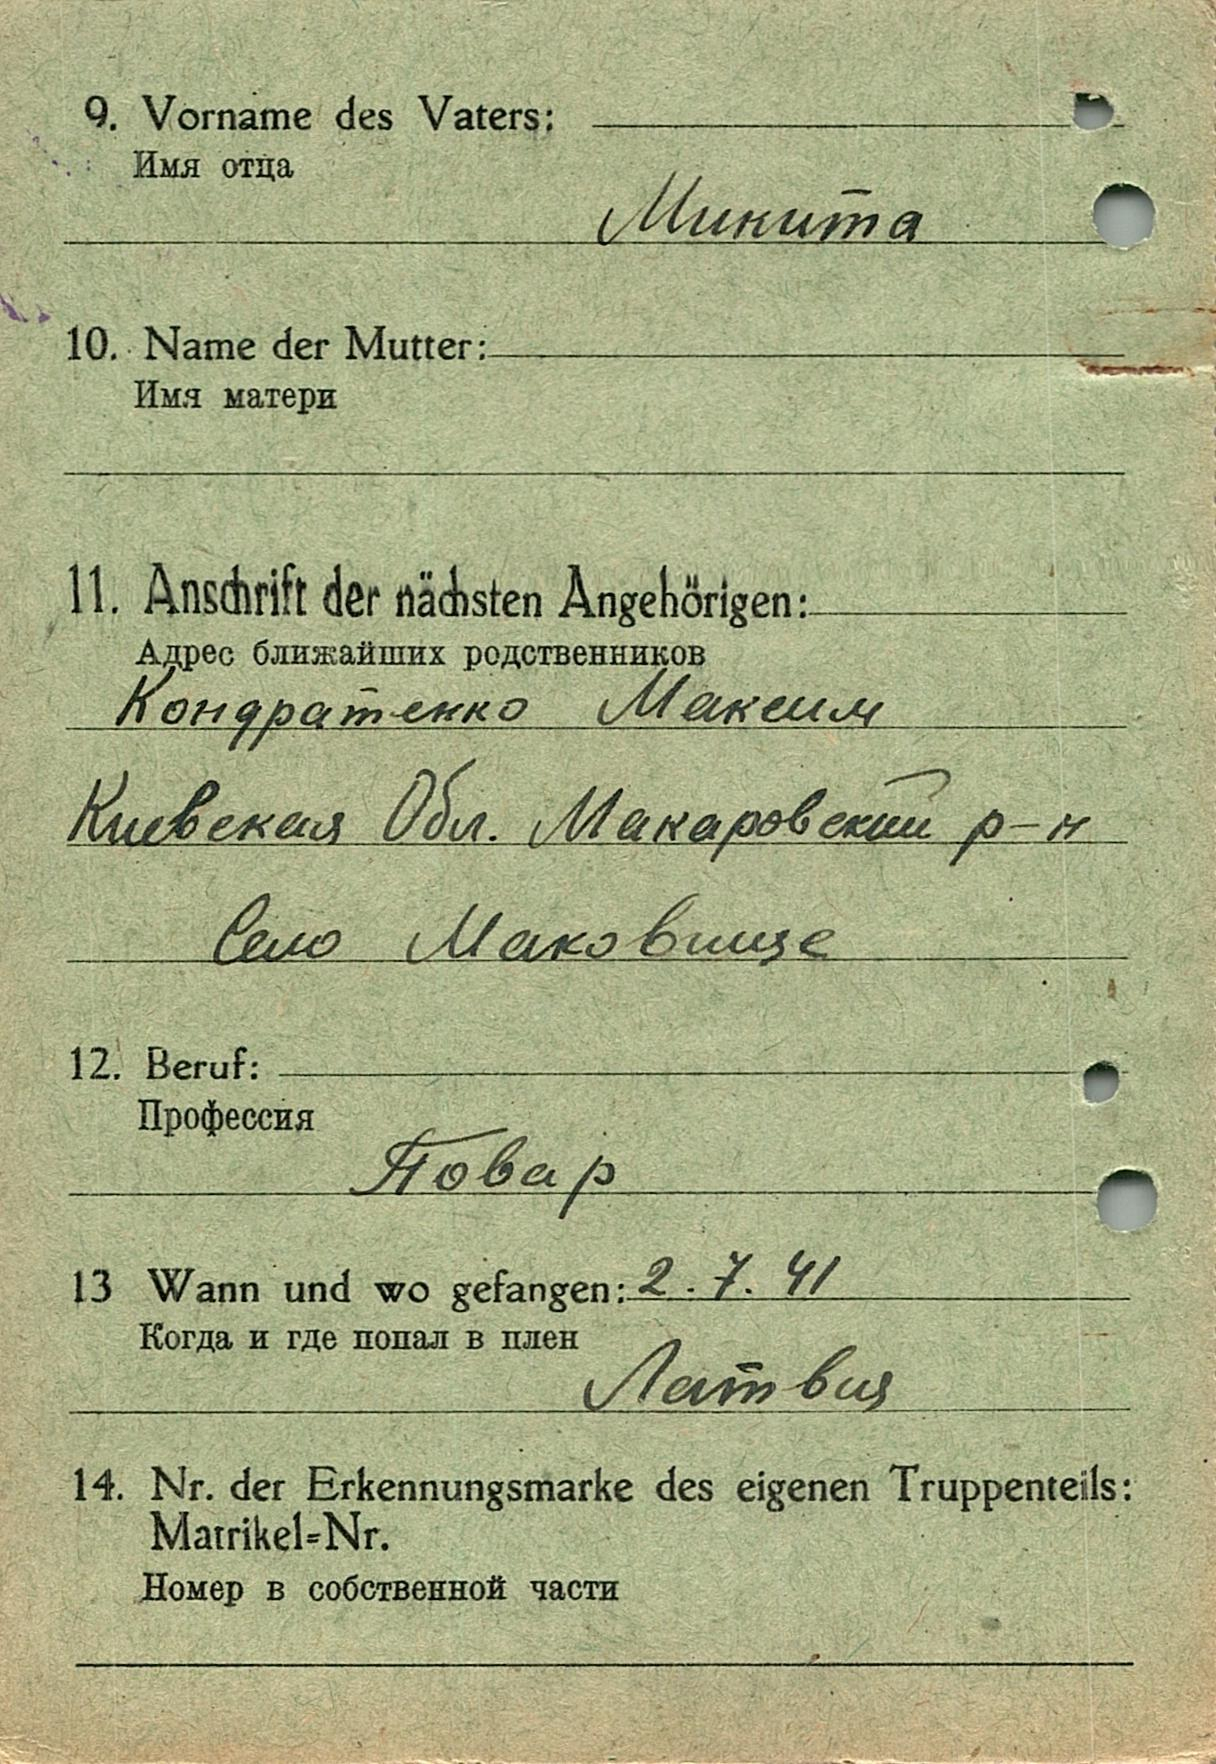 9. Vorname des Vaters:
Имя отца
Микита
10. Name der Mutter:
Имя матери
11. Anschrift der nächsten Angehörigen:
Адрес ближайших родственников
Кондратенко Максим
Киевская Обл. Макаровский р-н
Село Маковище
12. Beruf:
Профессия
Повар
13 Wann und wo gefangen: 2.7.41
Когда и где попал в плен
Латвия
14. Nr. der Erkennungsmarke des eigenen Truppenteils:
Matrikel=Nr.
Номер в собственной части